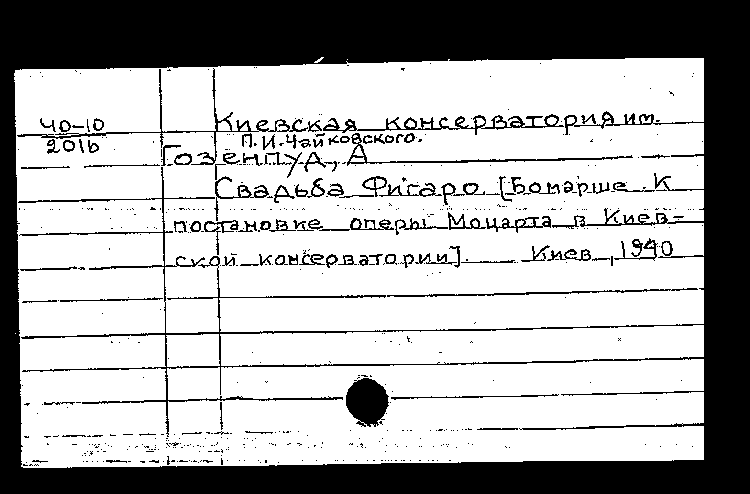 40-10
2016
Киевская консерватория им.
П.И.Чайковского.
Гозенпуд, А
Свадьба Фигаро. [Бомарше. К
постановке оперы Моцарта в Киев-
ской консерватории]. Киев, 1940